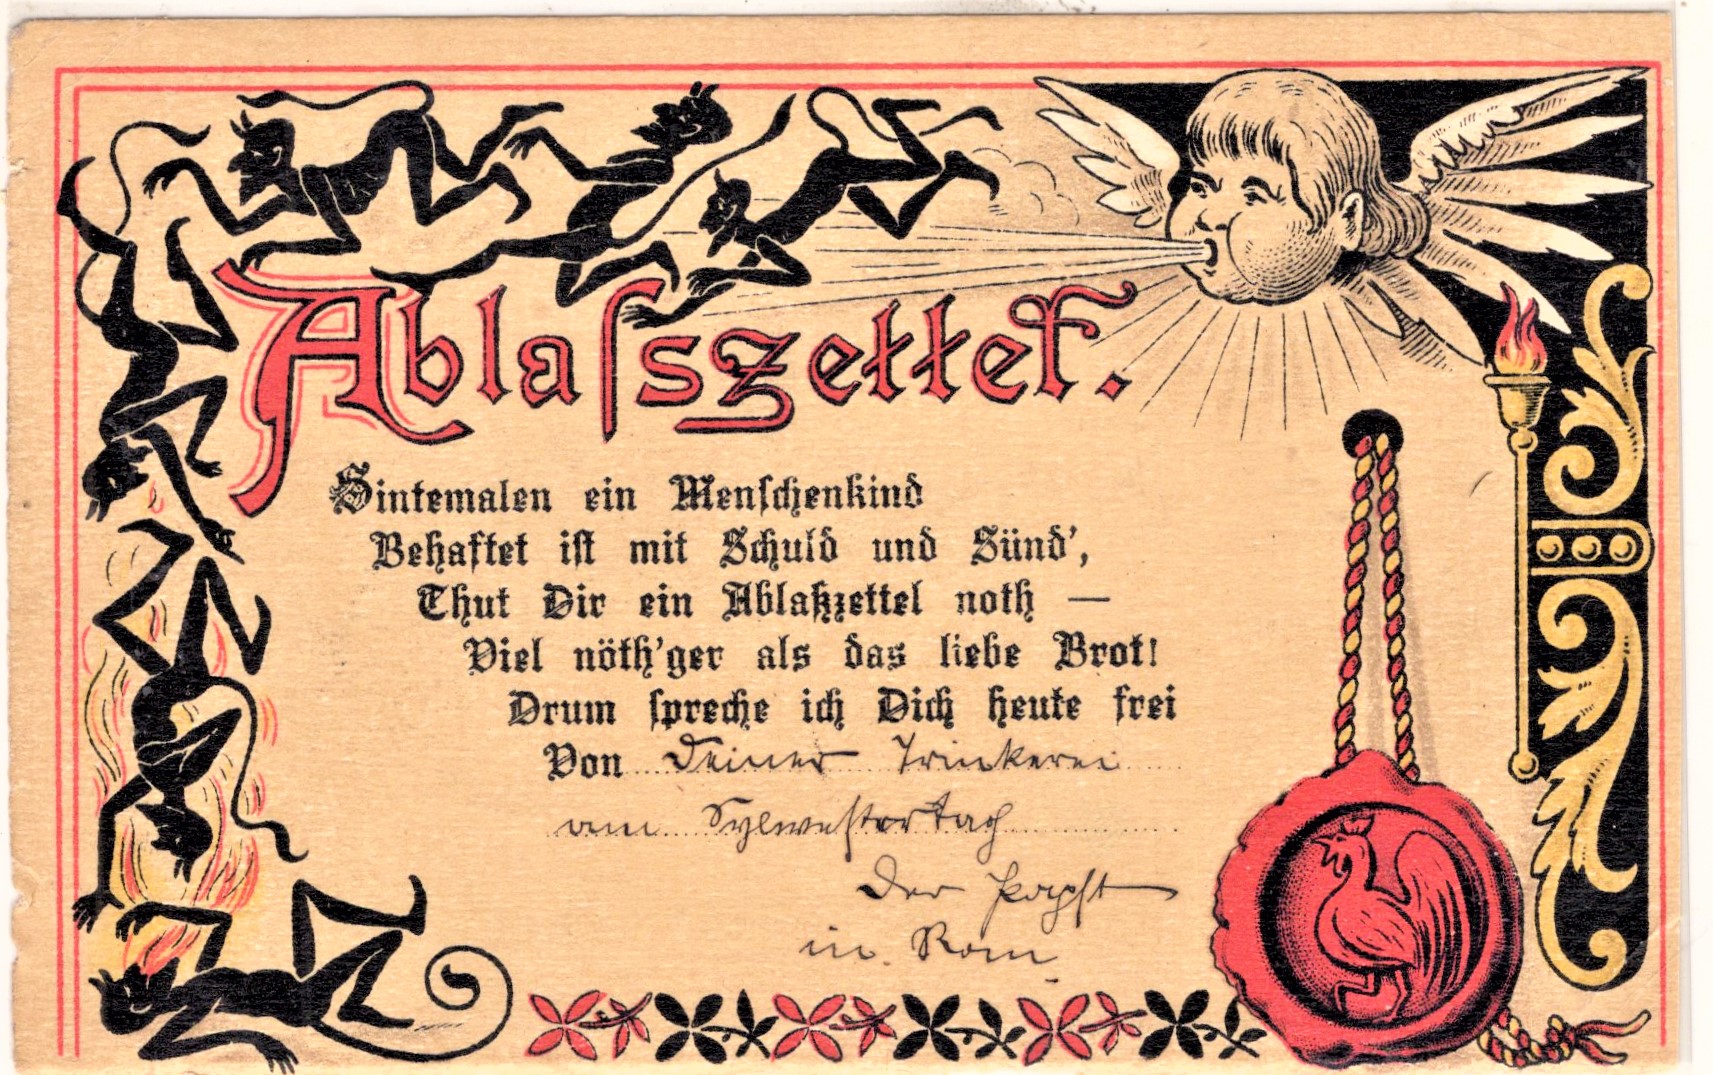 Ablaſszettel.
Sintemalen ein Menſchenkind
Behaftet iſt mit Schuld und Sünd',
Thut Dir ein Ablaßzettel noth —
Viel nöth'ger als das liebe Brot!
Drum ſpreche ich Dich heute frei
Von Deiner Trinkerei
am Sylvestertag
Der Papst
in Rom